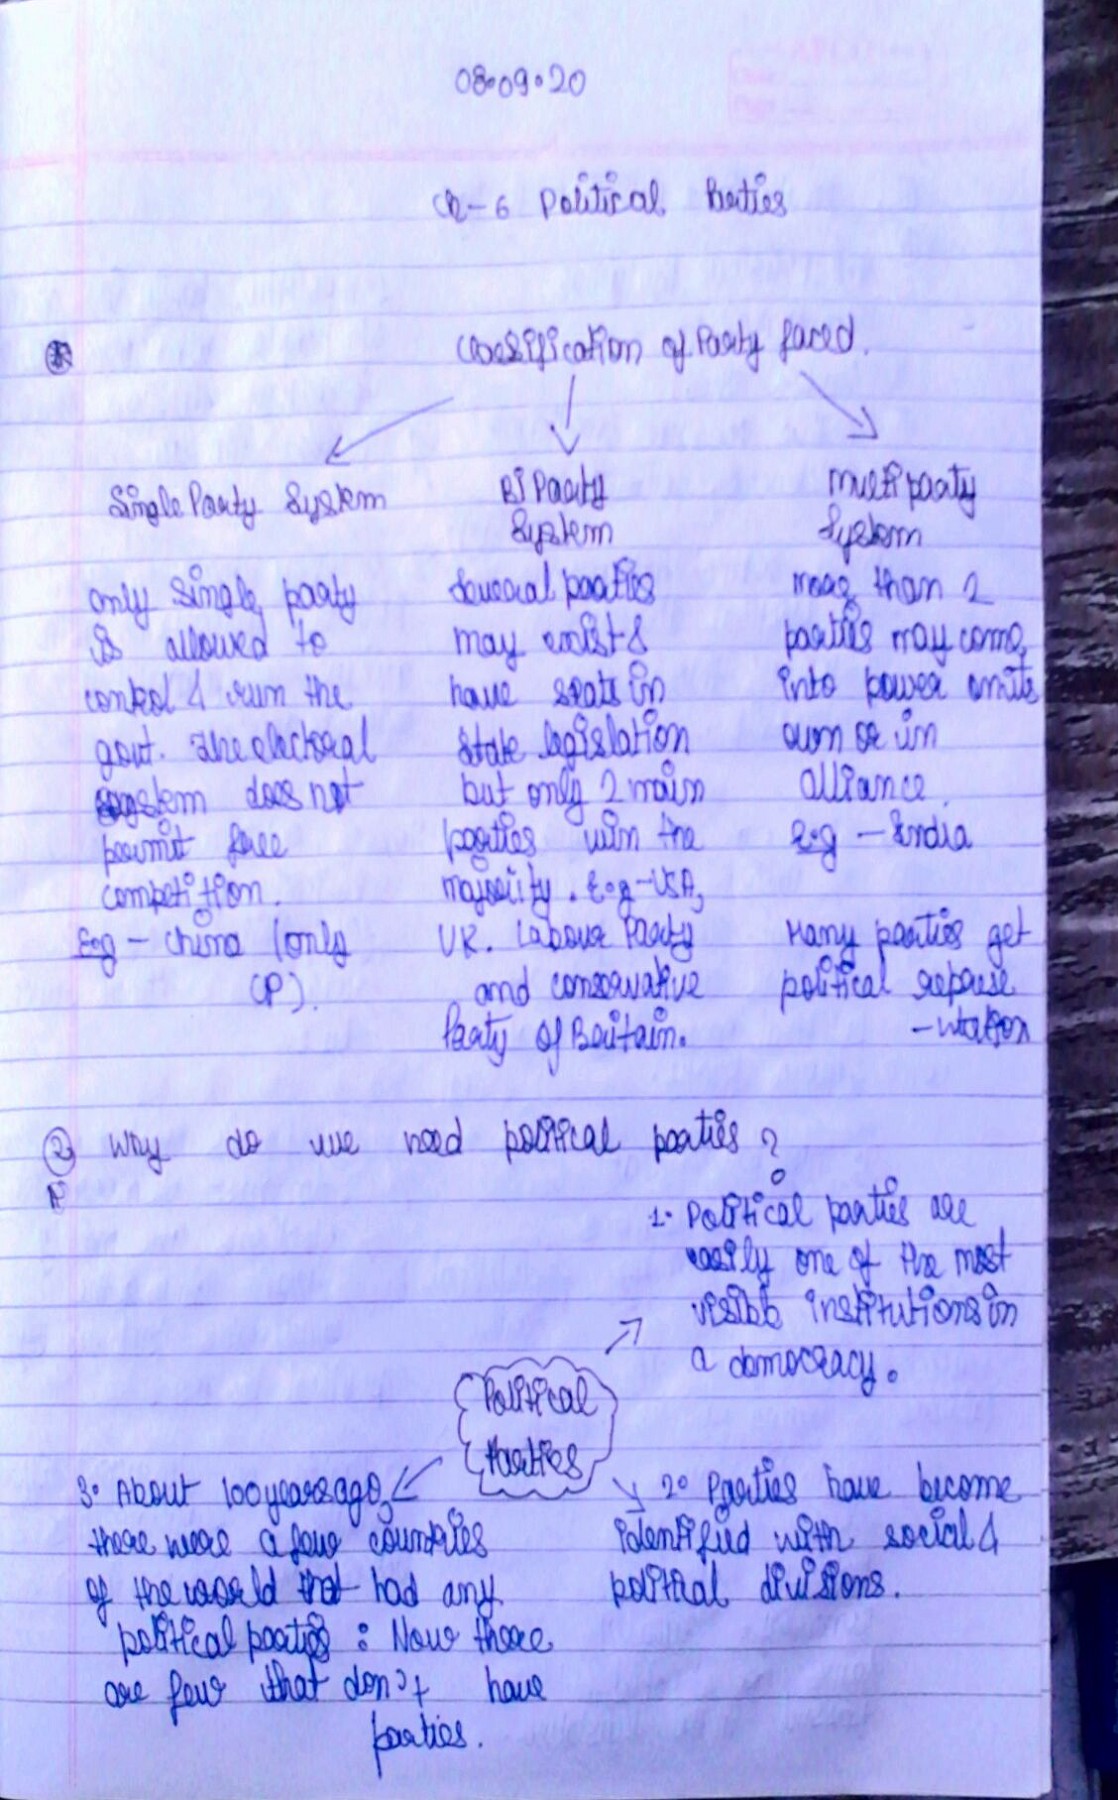 08.09.20
Ch-6 Political Parties
Classification of Party faced.
Single Party System
only single party
is allowed to
control & run the
govt. The electoral
system does not
permit free
competition.
E.g - China (only
CP).
Bi Party
System
Several parties
may exist &
have seats in
state legislation
but only 2 main
parties win the
majority. E.g-USA,
UK. Labour Party
and conservative
Party of Britain.
Multi party
System
more than 2
parties may come
into power on its
own or in
alliance.
E.g - India
Many parties get
political represe
-ntation
2 Why do we need political parties?
1. Political parties are
easily one of the most
visible institutions in
a democracy.
Political
Parties
2. Parties have become
identified with social &
political divisions.
3. About 100 years ago,
there were a few countries
of the world that had any
political parties: Now there
are few that don't have
parties.